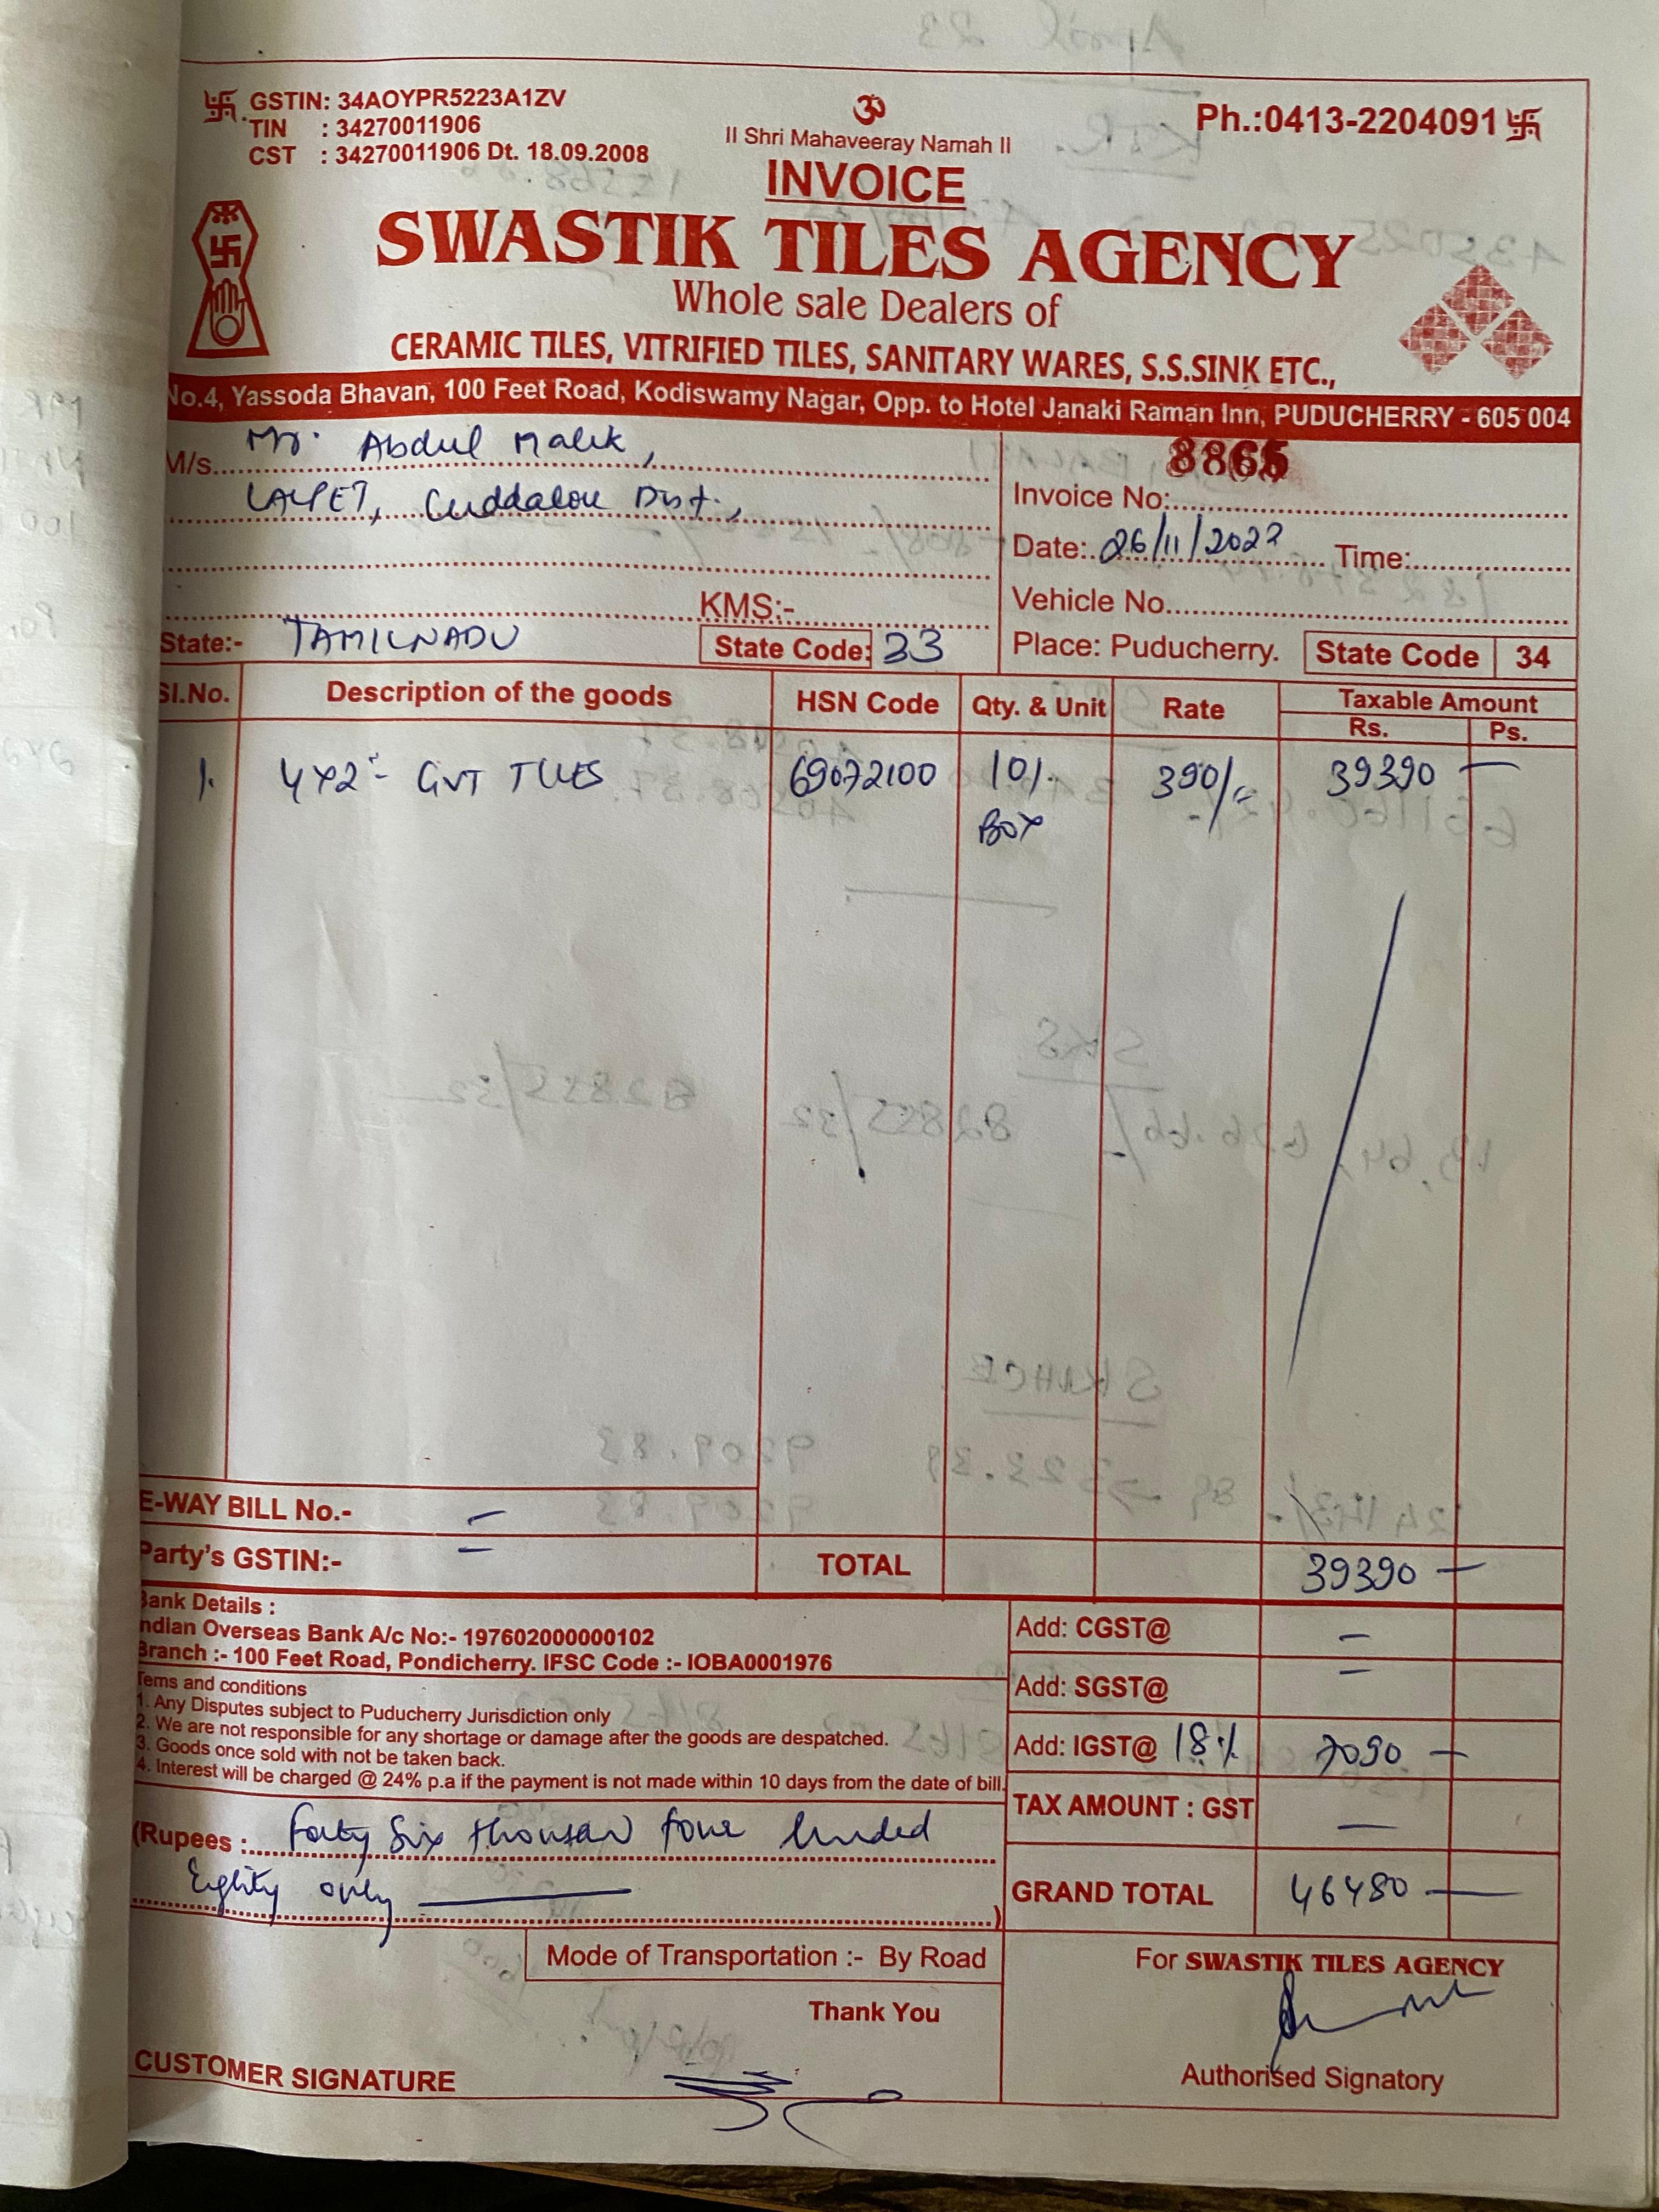 GSTIN: 34AOYPR5223A1ZV
TIN : 34270011906
CST : 34270011906 Dt. 18.09.2008
ॐ
II Shri Mahaveeray Namah II
Ph.:0413-2204091
INVOICE
SWASTIK TILES AGENCY
Whole sale Dealers of
CERAMIC TILES, VITRIFIED TILES, SANITARY WARES, S.S.SINK ETC.,
No.4, Yassoda Bhavan, 100 Feet Road, Kodiswamy Nagar, Opp. to Hotel Janaki Raman Inn, PUDUCHERRY - 605 004
M/s. Mr. Abdul Malik,
LALPET, Cuddalore Dist.,
8865
Invoice No:
Date: 26/11/2022 Time:
KMS:-
Vehicle No.
State:- TAMILNADU State Code: 33
Place: Puducherry. State Code 34
Sl.No. Description of the goods HSN Code Qty. & Unit Rate Taxable Amount
Rs. Ps.
1. 4x2 - GVT TILES 69072100 101. 390/= 39390 —
BOX
E-WAY BILL No.- —
Party's GSTIN:- = TOTAL 39390 —
Bank Details :
Indian Overseas Bank A/c No:- 197602000000102
Branch :- 100 Feet Road, Pondicherry. IFSC Code :- IOBA0001976
Tems and conditions
1. Any Disputes subject to Puducherry Jurisdiction only
2. We are not responsible for any shortage or damage after the goods are despatched.
3. Goods once sold with not be taken back.
4. Interest will be charged @ 24% p.a if the payment is not made within 10 days from the date of bill.
Add: CGST@ —
Add: SGST@ —
Add: IGST@ 18% 7090 —
TAX AMOUNT : GST —
GRAND TOTAL 46480 —
(Rupees : Forty Six thousan four hunded
Eighty only —)
Mode of Transportation :- By Road
Thank You
CUSTOMER SIGNATURE
For SWASTIK TILES AGENCY
Authorised Signatory